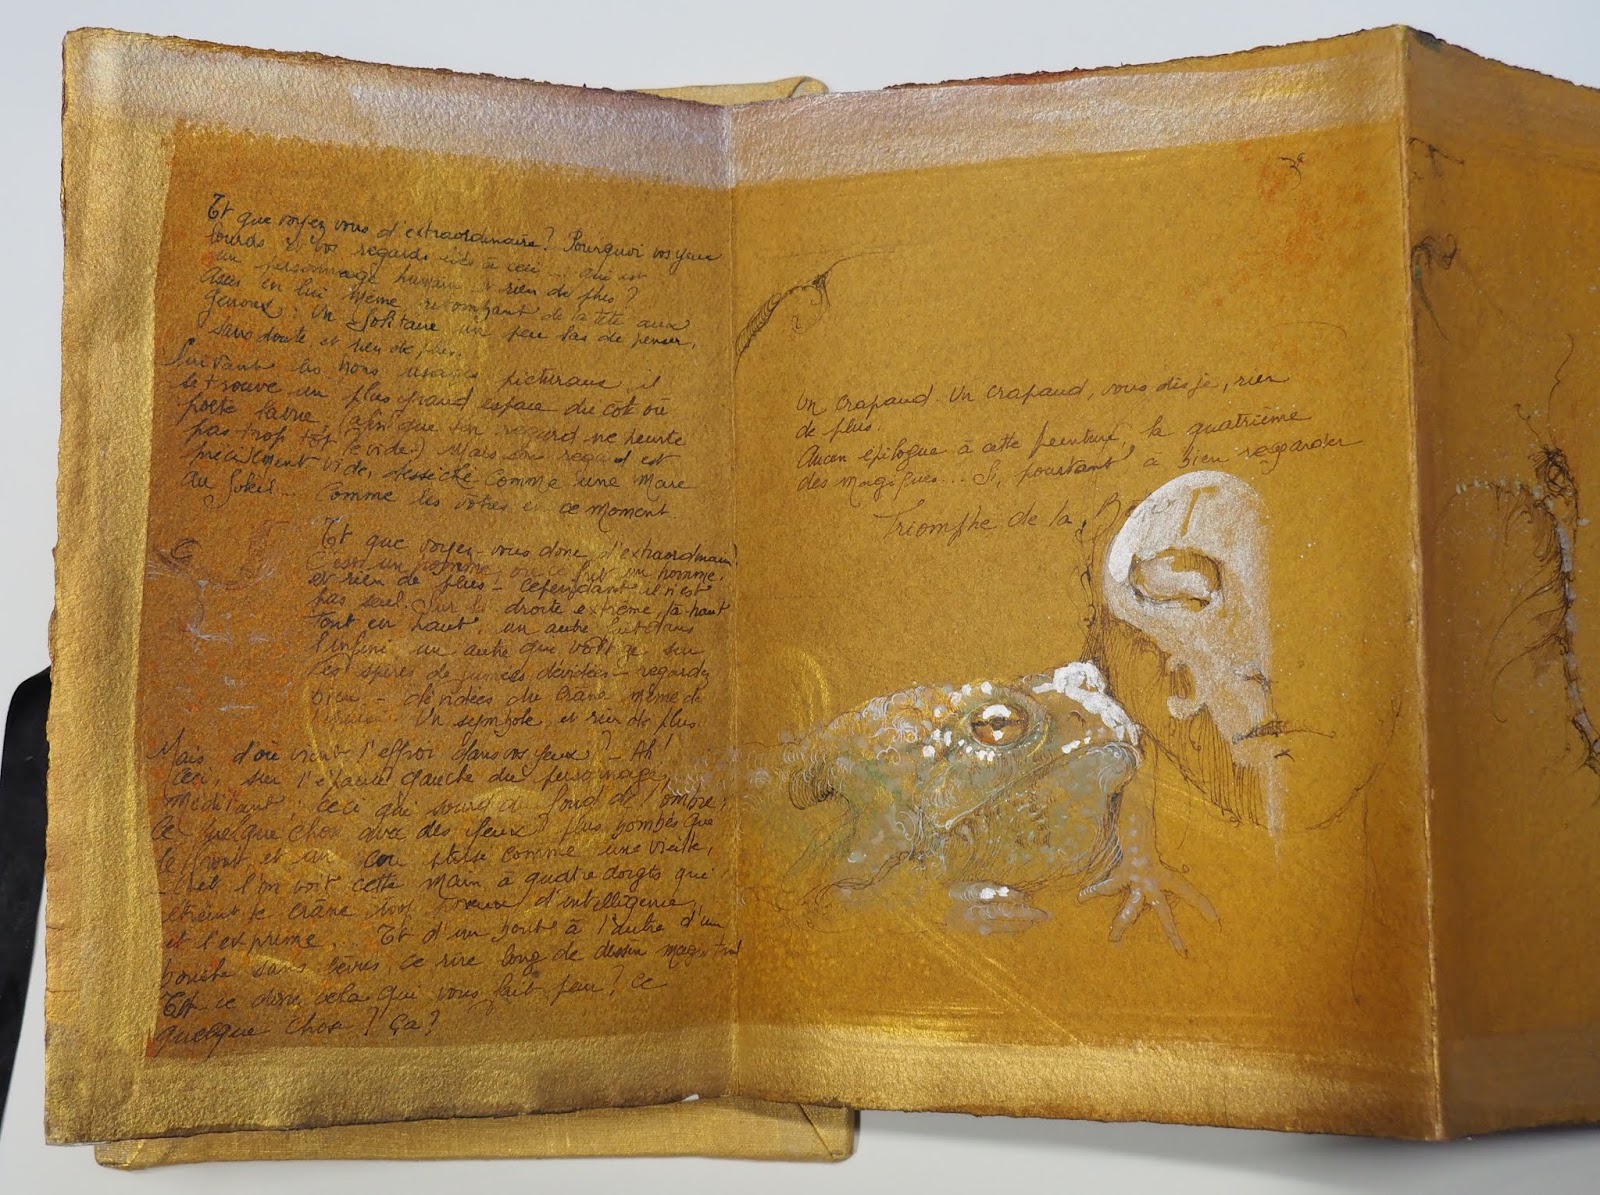 Et que voyez vous d'extraordinaire? Pourquoi vos yeux
lourds et vos regards liés à ceci... qui est
un personnage humain et rien de plus?
Assis en lui même retombant de la tête aux
genoux; Un Solitaire un peu las de penser,
sans doute et rien de plus.
Suivant les bons usages picturaux il
se trouve un plus grand espace du côté où
porte la vue, (afin que son regard ne heurte
pas trop tôt le vide.) Mais son regard est
précisément vide, desséché comme une mare
au Soleil... Comme les vôtres en ce moment.
Et que voyez-vous donc d'extraordinaire?
C'est un homme ou ce fut un homme,
et rien de plus - Cependant il n'est
pas seul. Sur la droite extrême, là-haut
tout en haut, un autre luit dans
l'infini un autre que voit ce
les spires de fumées dévidées - regardez
bien - dévidées du crâne même de
Un symbole, et rien de plus
Mais d'où vient l'effroi dans vos yeux? - Ah!
Ceci, sur l'épaule gauche du personnage
méditant; ceci qui sourd du fond de l'ombre,
ce quelque chose avec des yeux plus bombés que
le front et un cou plissé comme une vieille,
et l'on voit cette main à quatre doigts qui
étreint le crâne trop poreux d'intelligence
et l'exprime... Et d'un bout à l'autre d'un
bouche sans lèvres, ce rire long de dessin magistral
Est ce donc cela qui vous fait peur? Ce
quelque chose? Ça?
Un crapaud. Un crapaud, vous dis je, rien
de plus.
Aucun épilogue à cette peinture, la quatrième
des magiques... Si, pourtant à bien regarder
Triomphe de la